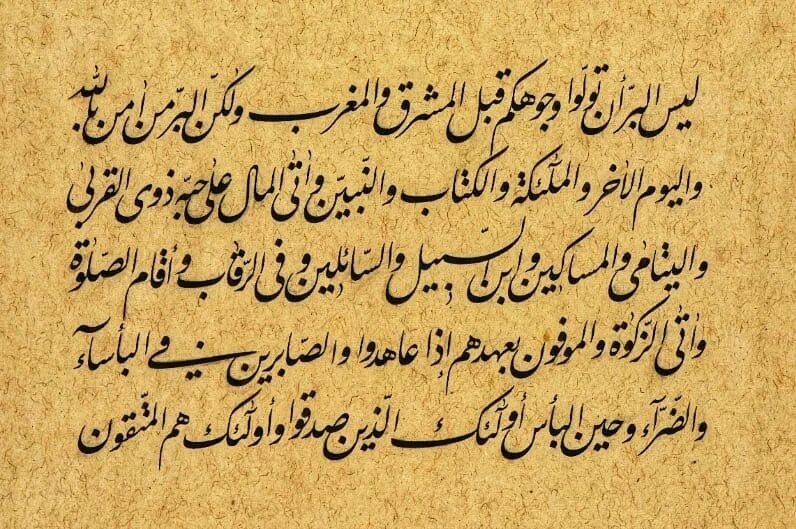 ليس البرّ أن تولّوا وجوهكم قبل المشرق والمغرب ولكنّ البرّ من اٰمن بالله
واليوم الاٰخر والملٰٓئكة والكتاب والنّبيّن واٰتى المال علىٰ حبّه ذوى القربىٰ
واليتامىٰ والمساكين وابن السّبيل والسّائلين وفى الرّقاب وأقام الصّلوٰة
واٰتى الزّكوٰة والموفون بعهدهم إذا عاهدوا والصّابرين في البأسآء
والضّرّآء وحين البأس أولٰٓئك الّذين صدقوا وأولٰٓئك هم المتّقون